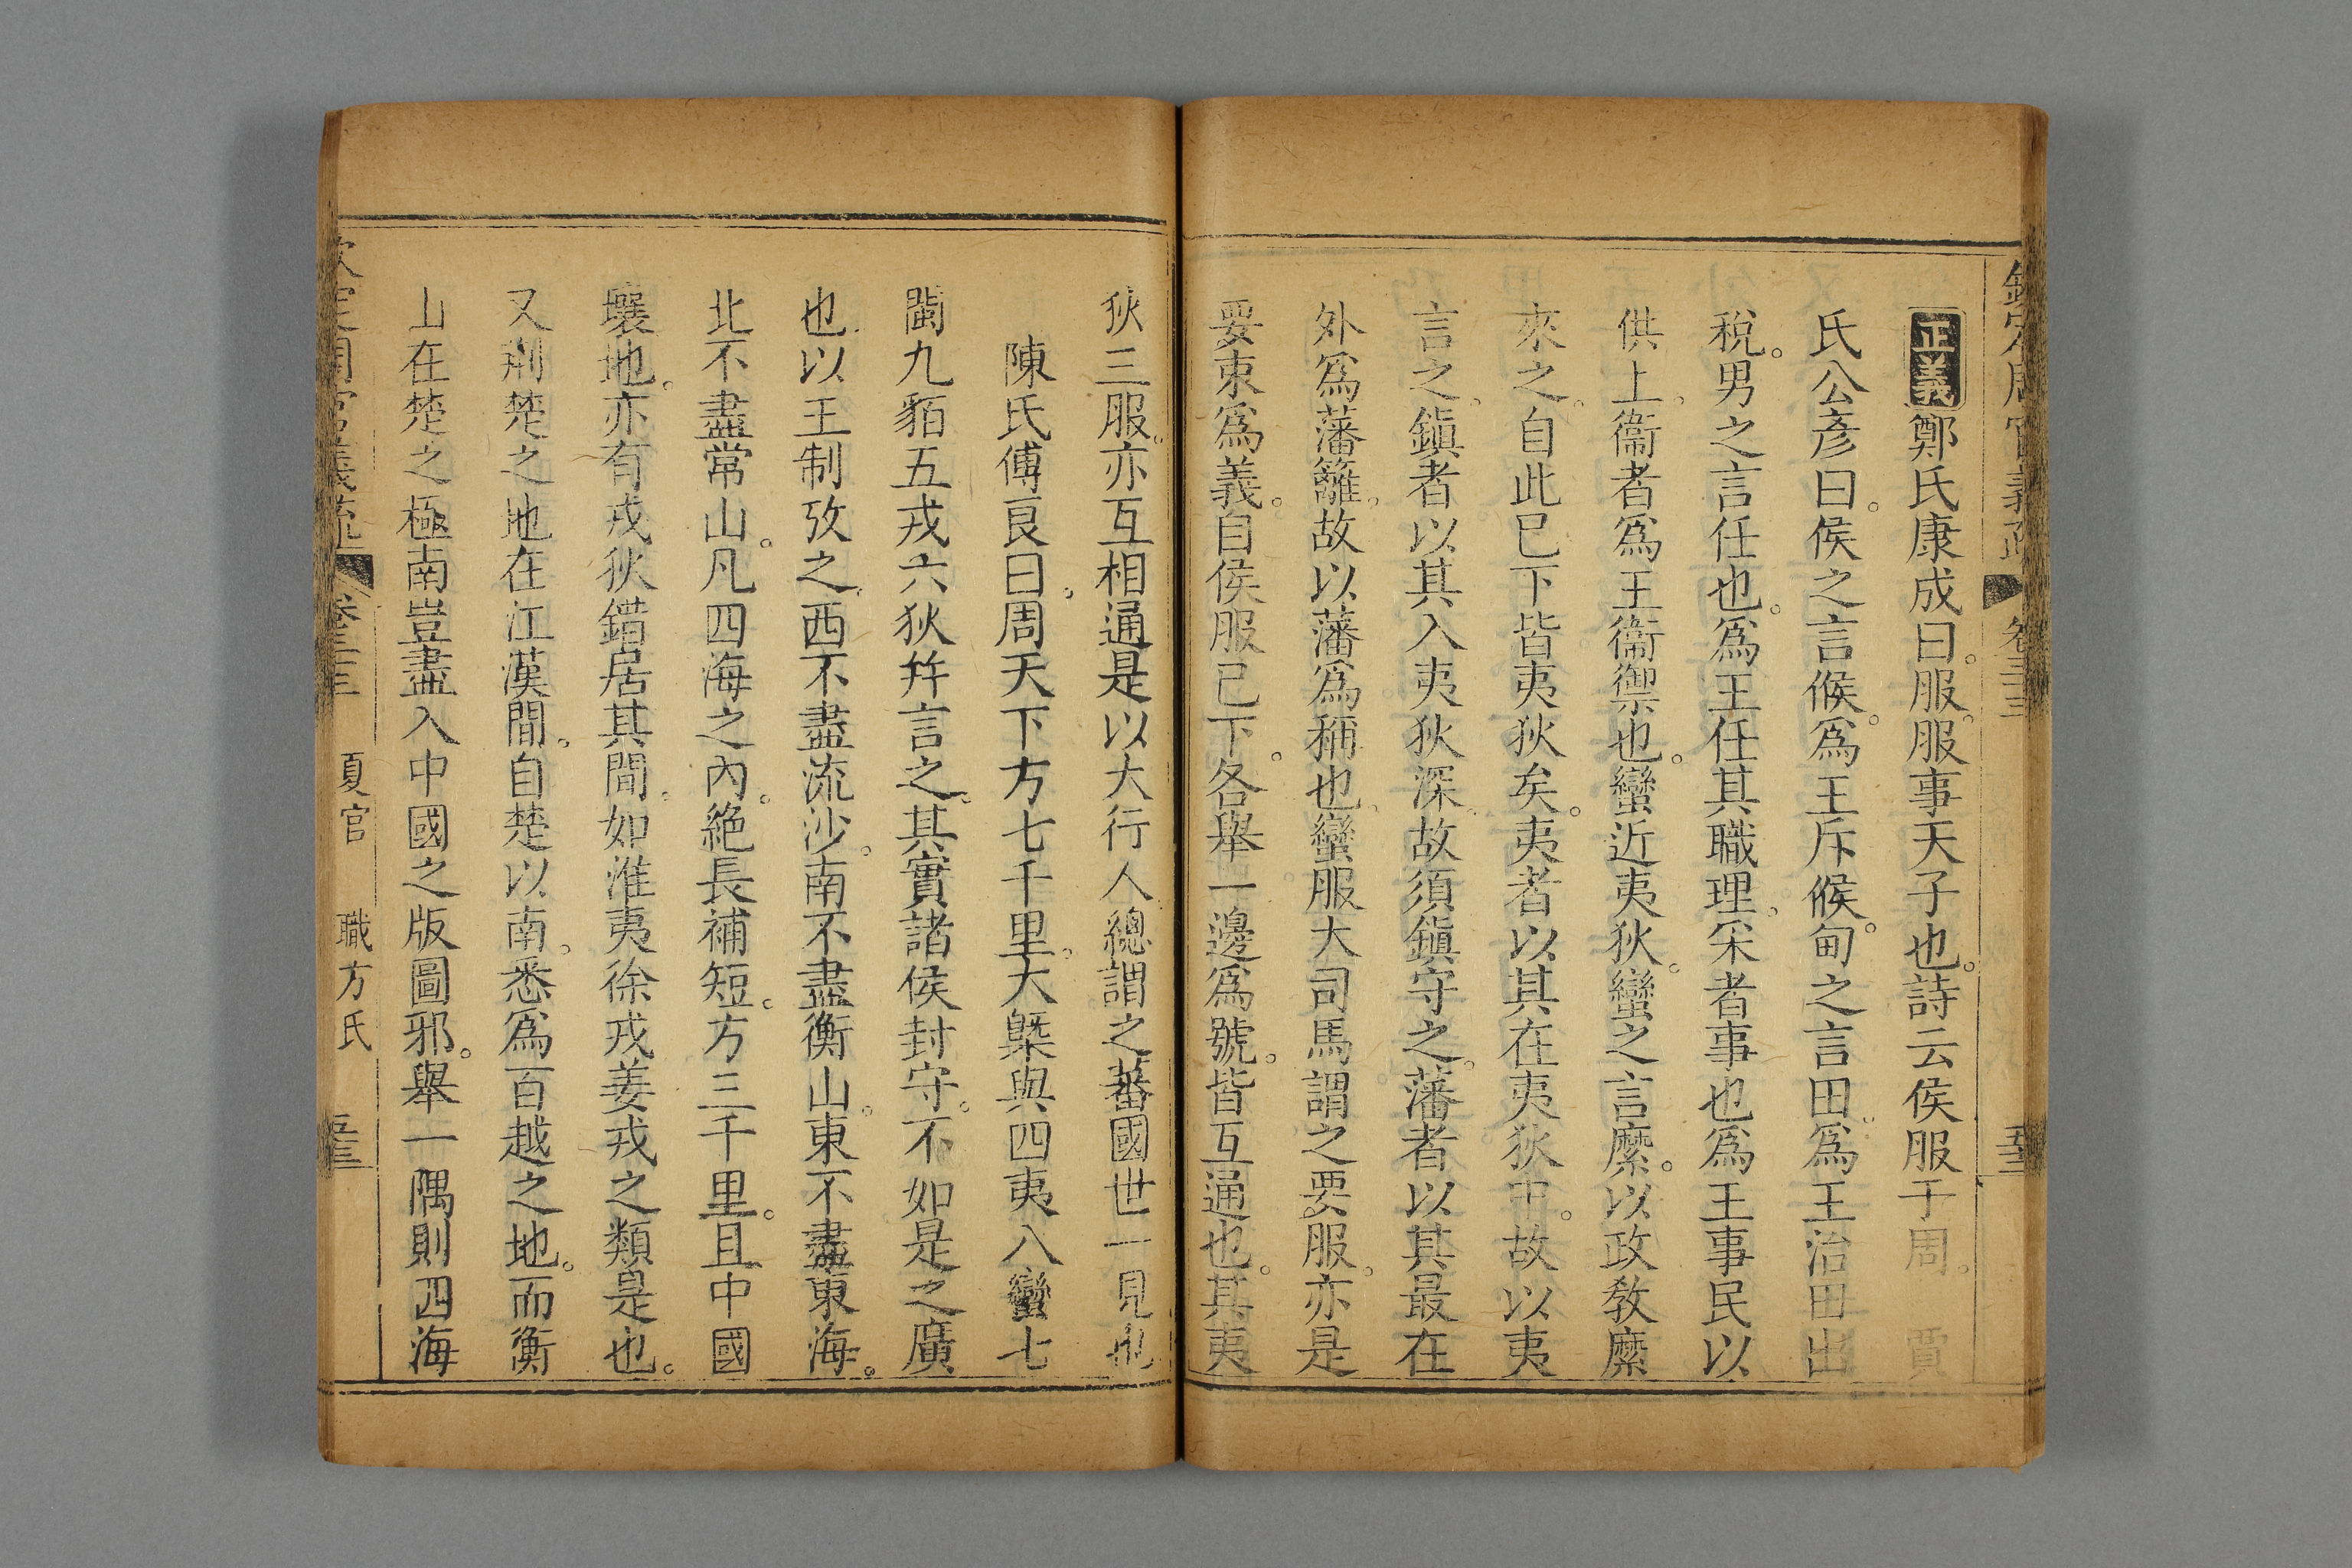 欽定周官義疏 卷三十三 五十三
正義鄭氏康成曰。服。服事天子也。詩云侯服于周。賈
氏公彥曰。侯之言候。爲王斥候。甸之言田。爲王治田出
稅。男之言任也。爲王任其職理。采者事也爲王事民以
供上。衞者爲王衞禦也。蠻近夷狄。蠻之言縻。以政敎縻
來之。自此已下皆夷狄矣。夷者以其在夷狄中。故以夷
言之。鎭者以其入夷狄深。故須鎭守之。藩者以其最在
外爲藩籬。故以藩爲稱也。蠻服大司馬謂之要服。亦是
要束爲義。自侯服已下。各舉一邊爲號。皆互通也。其夷
狄三服。亦互相通是以大行人總謂之蕃國世一見也
陳氏傅良曰。周天下方七千里。大槩與四夷八蠻七
閩九貊五戎六狄幷言之。其實諸侯封守。不如是之廣
也。以王制攷之。西不盡流沙。南不盡衡山。東不盡東海。
北不盡常山。凡四海之內。絕長補短。方三千里。且中國
壤地。亦有戎狄錯居其間。如淮夷徐戎姜戎之類是也。
又荆楚之地在江漢間。自楚以南。悉爲百越之地。而衡
山在楚之極南豈盡入中國之版圖邪。舉一隅則四海
欽定周官義疏 卷三十三 夏官 職方氏 五十三